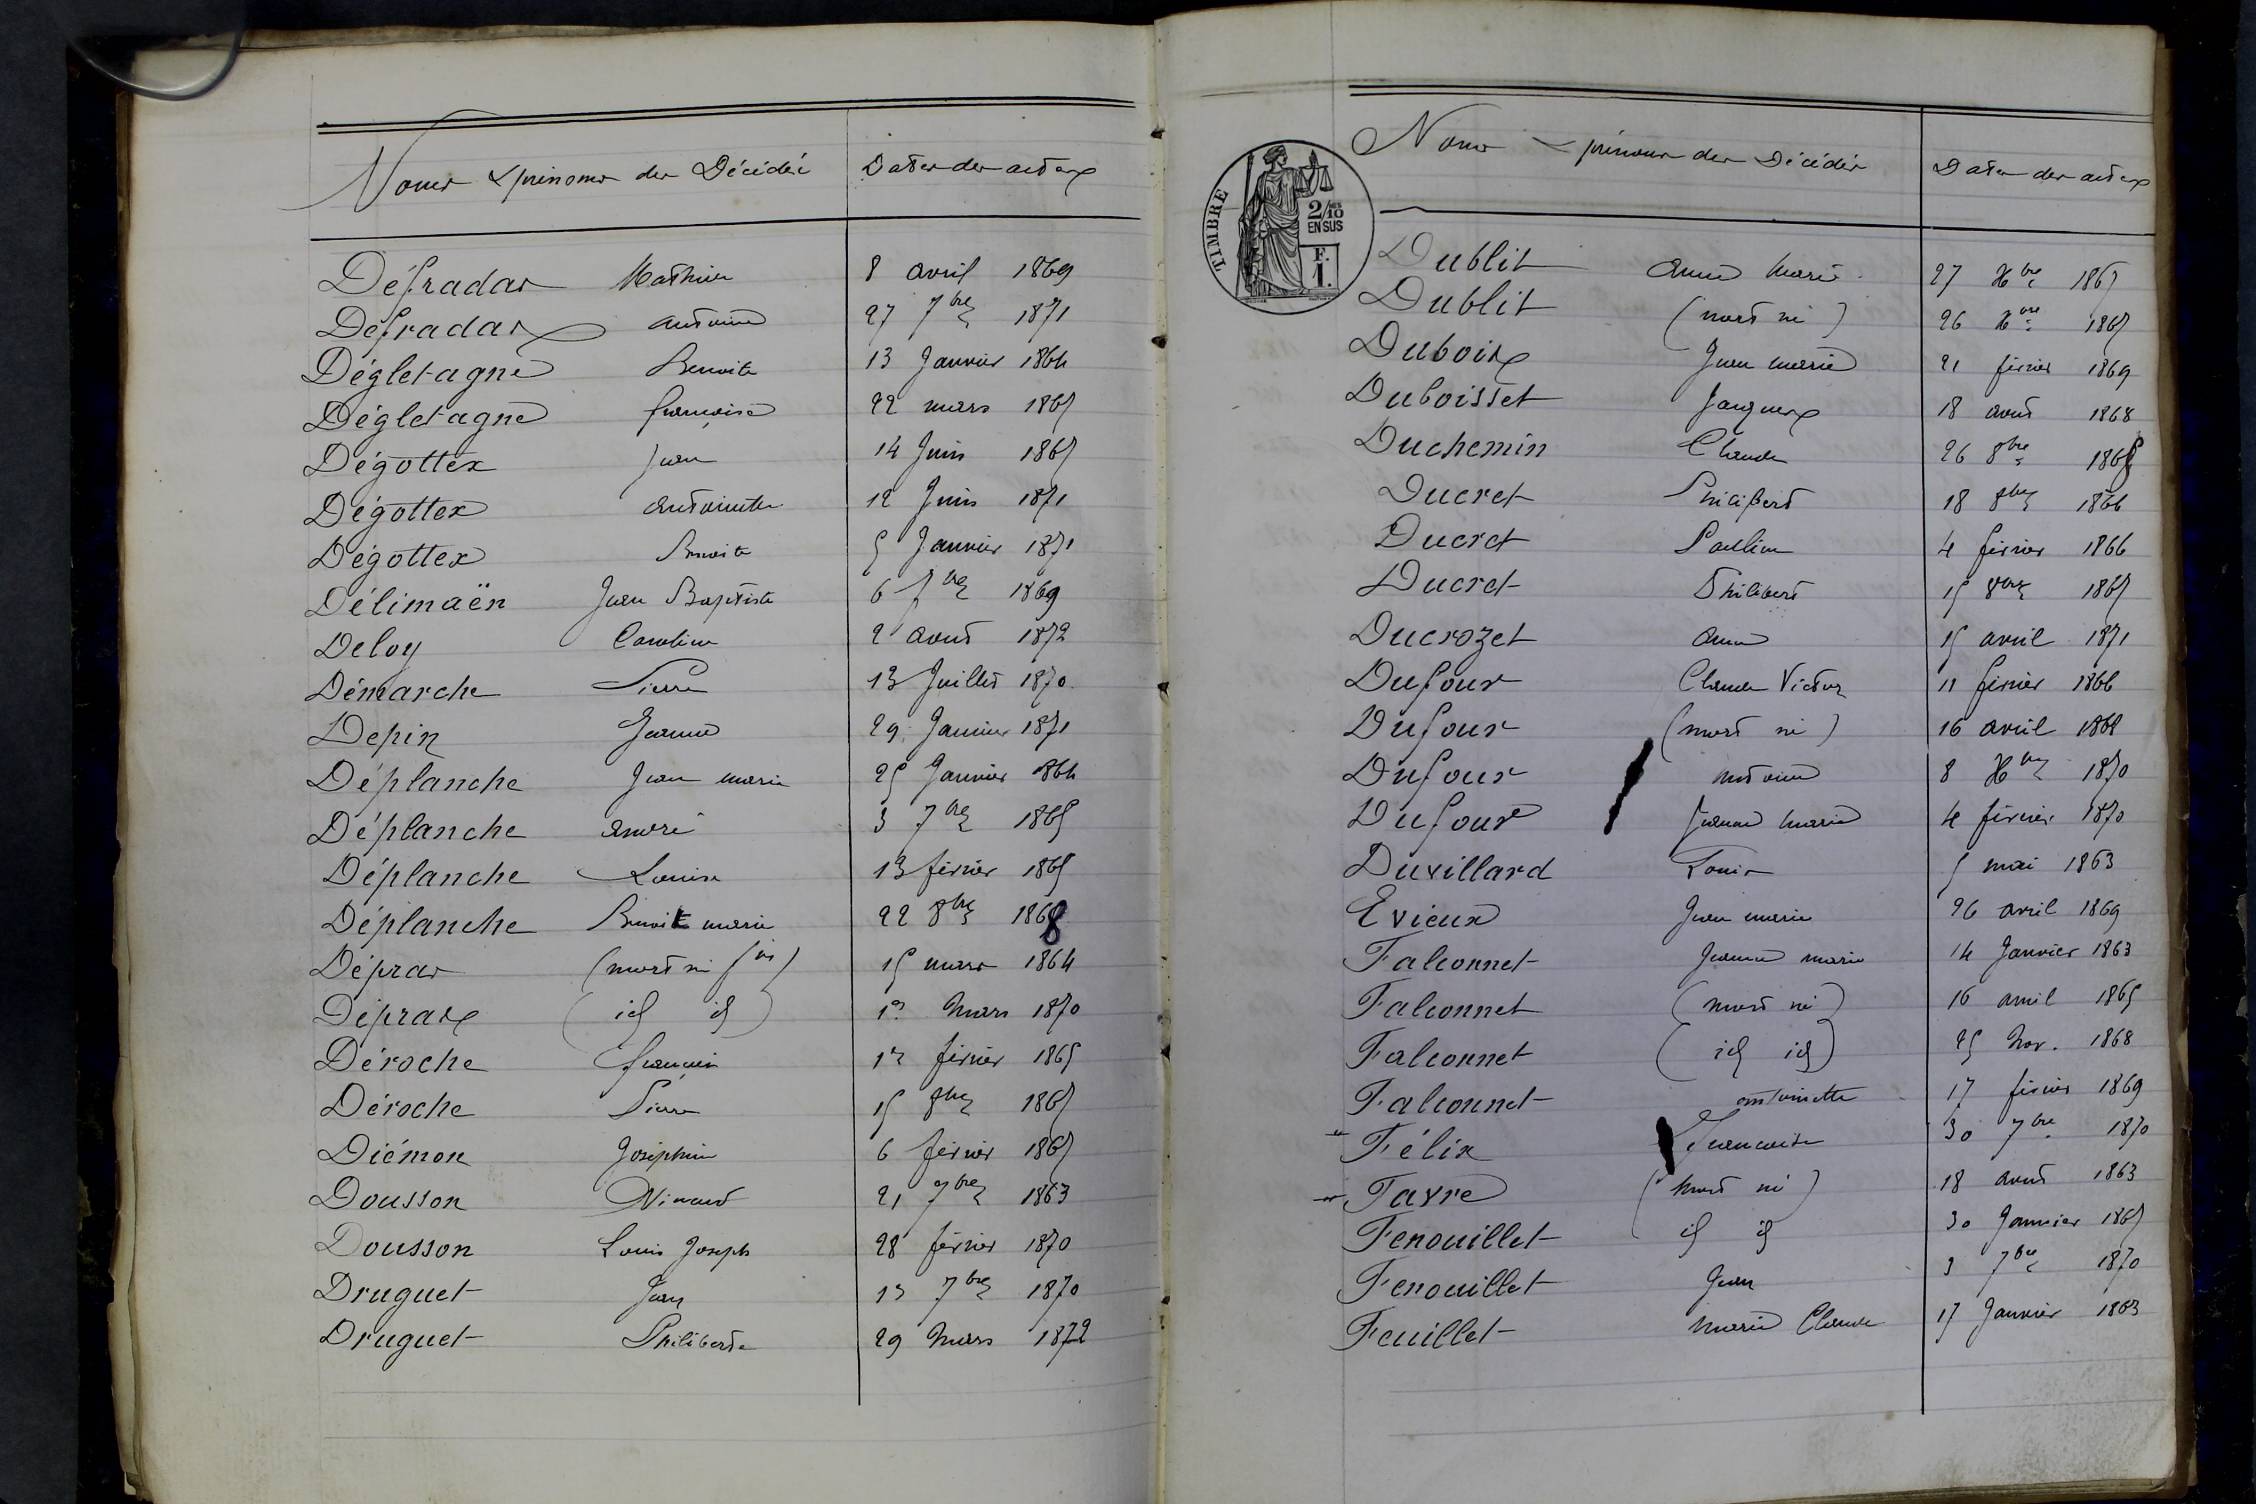 Noms & prénoms des Décédés Dates des actes
Défradas Mathieu 8 avril 1869
Défradas antoine 27 7bre 1871
Dégletagne Benoite 13 Janvier 1864
Dégletagne françoise 22 mars 1865
Dégottex Jean 14 Juin 1865
Dégottex antoinette 12 Juin 1871
Dégottex Benoite 5 Janvier 1871
Délimaën Jean Baptiste 6 7bre 1869
Deloy Caroline 2 aout 1872
Démarche Pierre 13 Juillet 1870
Depin Jeanne 29 Janvier 1871
Déplanche Jean marie 25 Janvier 1864
Déplanche andré 3 7bre 1865
Déplanche Louise 13 février 1865
Déplanche Benoit marie 22 8bre 1868
Dépras (mort né 15 mars 1864
Dépras (id id) 1er Mars 1870
Déroche françois février 1865
Déroche Pierre 15 8bre 1865
Diémon Joséphine 6 février 1865
Dousson 21 7bre 1863
Dousson Louis Joseph 28 février 1870
Druguet Jean 13 7bre 1870
Druguet Philiberte 29 Mars 1872
Noms & prénoms des Décédés Dates des actes
TIMBRE
2/10 EN SUS
F. 1.
Dublit anne Marie 27 Xbre
Dublit (mort né) 26 Xbre 1865
Dubois Jean marie 21 février 1869
Duboisset Jacques 18 aout 1868
Duchemin Claude 26 8bre
Ducret Philibert 18 8bre 1866
Ducret Pauline 4 février 1866
Ducret Philibert 15 8bre 1865
Ducrozet anne 15 avril 1871
Dufour Claude Victor 11 février 1866
Dufour (mort né) 16 avril 1868
Dufour antoine 8 Xbre 1870
Dufour Jeanne Marie 4 février 1870
Duvillard Louis 5 mai 1863
Evieux Jean marie 26 avril 1869
Falconnet Jeanne marie 14 Janvier 1863
Falconnet (mort né) 16 avril 1865
Falconnet (id id) 25 Nov. 1868
Falconnet antoinette 17 février 1869
Félix Francoise 30 7bre 1870
Favre (Mort né) 18 aout 1863
Fenouillet id id 30 Janvier 1865
Fenouillet Jean 3 7bre 1870
Feuillet Marie Claude 17 Janvier 1863